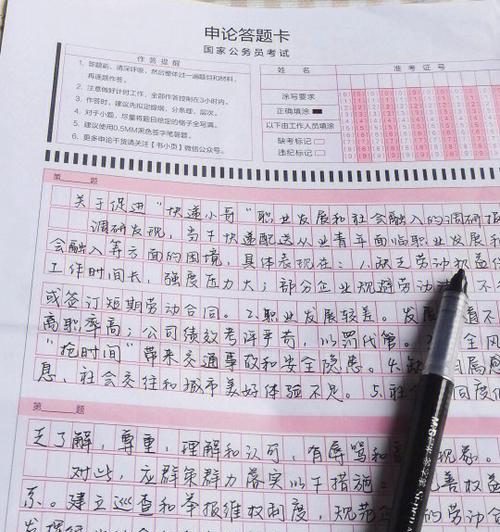 申论答题卡
国家公务员考试
作答提醒
1. 答题前，请深呼吸，然后整体过一遍题目和材料，
再逐题作答。
2. 注意做好计时工作，全部作答控制在3小时内。
3. 作答时，建议先拟定提纲，分条理、层次。
4. 对于小题，尽量将题目给定的格子全写满。
5. 建议使用0.5MM黑色签字笔答题。
6. 更多申论干货请关注【书小页】微信公众号。
姓名
准考证号
填涂要求
正确填涂
以下由工作人员填涂
缺考标记
违纪标记
第 题
关于促进“快递小哥”职业发展和社会融入的调研报
调研发现，当于快递配送从业青年面临职业发展和
会融入等方面的困境，具体表现在：1.缺乏劳动权益保
工作时间长，强度压力大；部分企业规避劳动
或签订短期劳动合同。2.职业发展较差。发展
离职率高；公司绩效考评严苛，以罚代管。
“抢时间”带来交通事故和安全隐患。4.缺
息，社会交往和城市美好体验不足。5.社
第 题
乏了解，尊重，理解和认可，有辱骂和
对此，应群策群力落实以于措施：
系。建立巡查和举报维权制度，规范